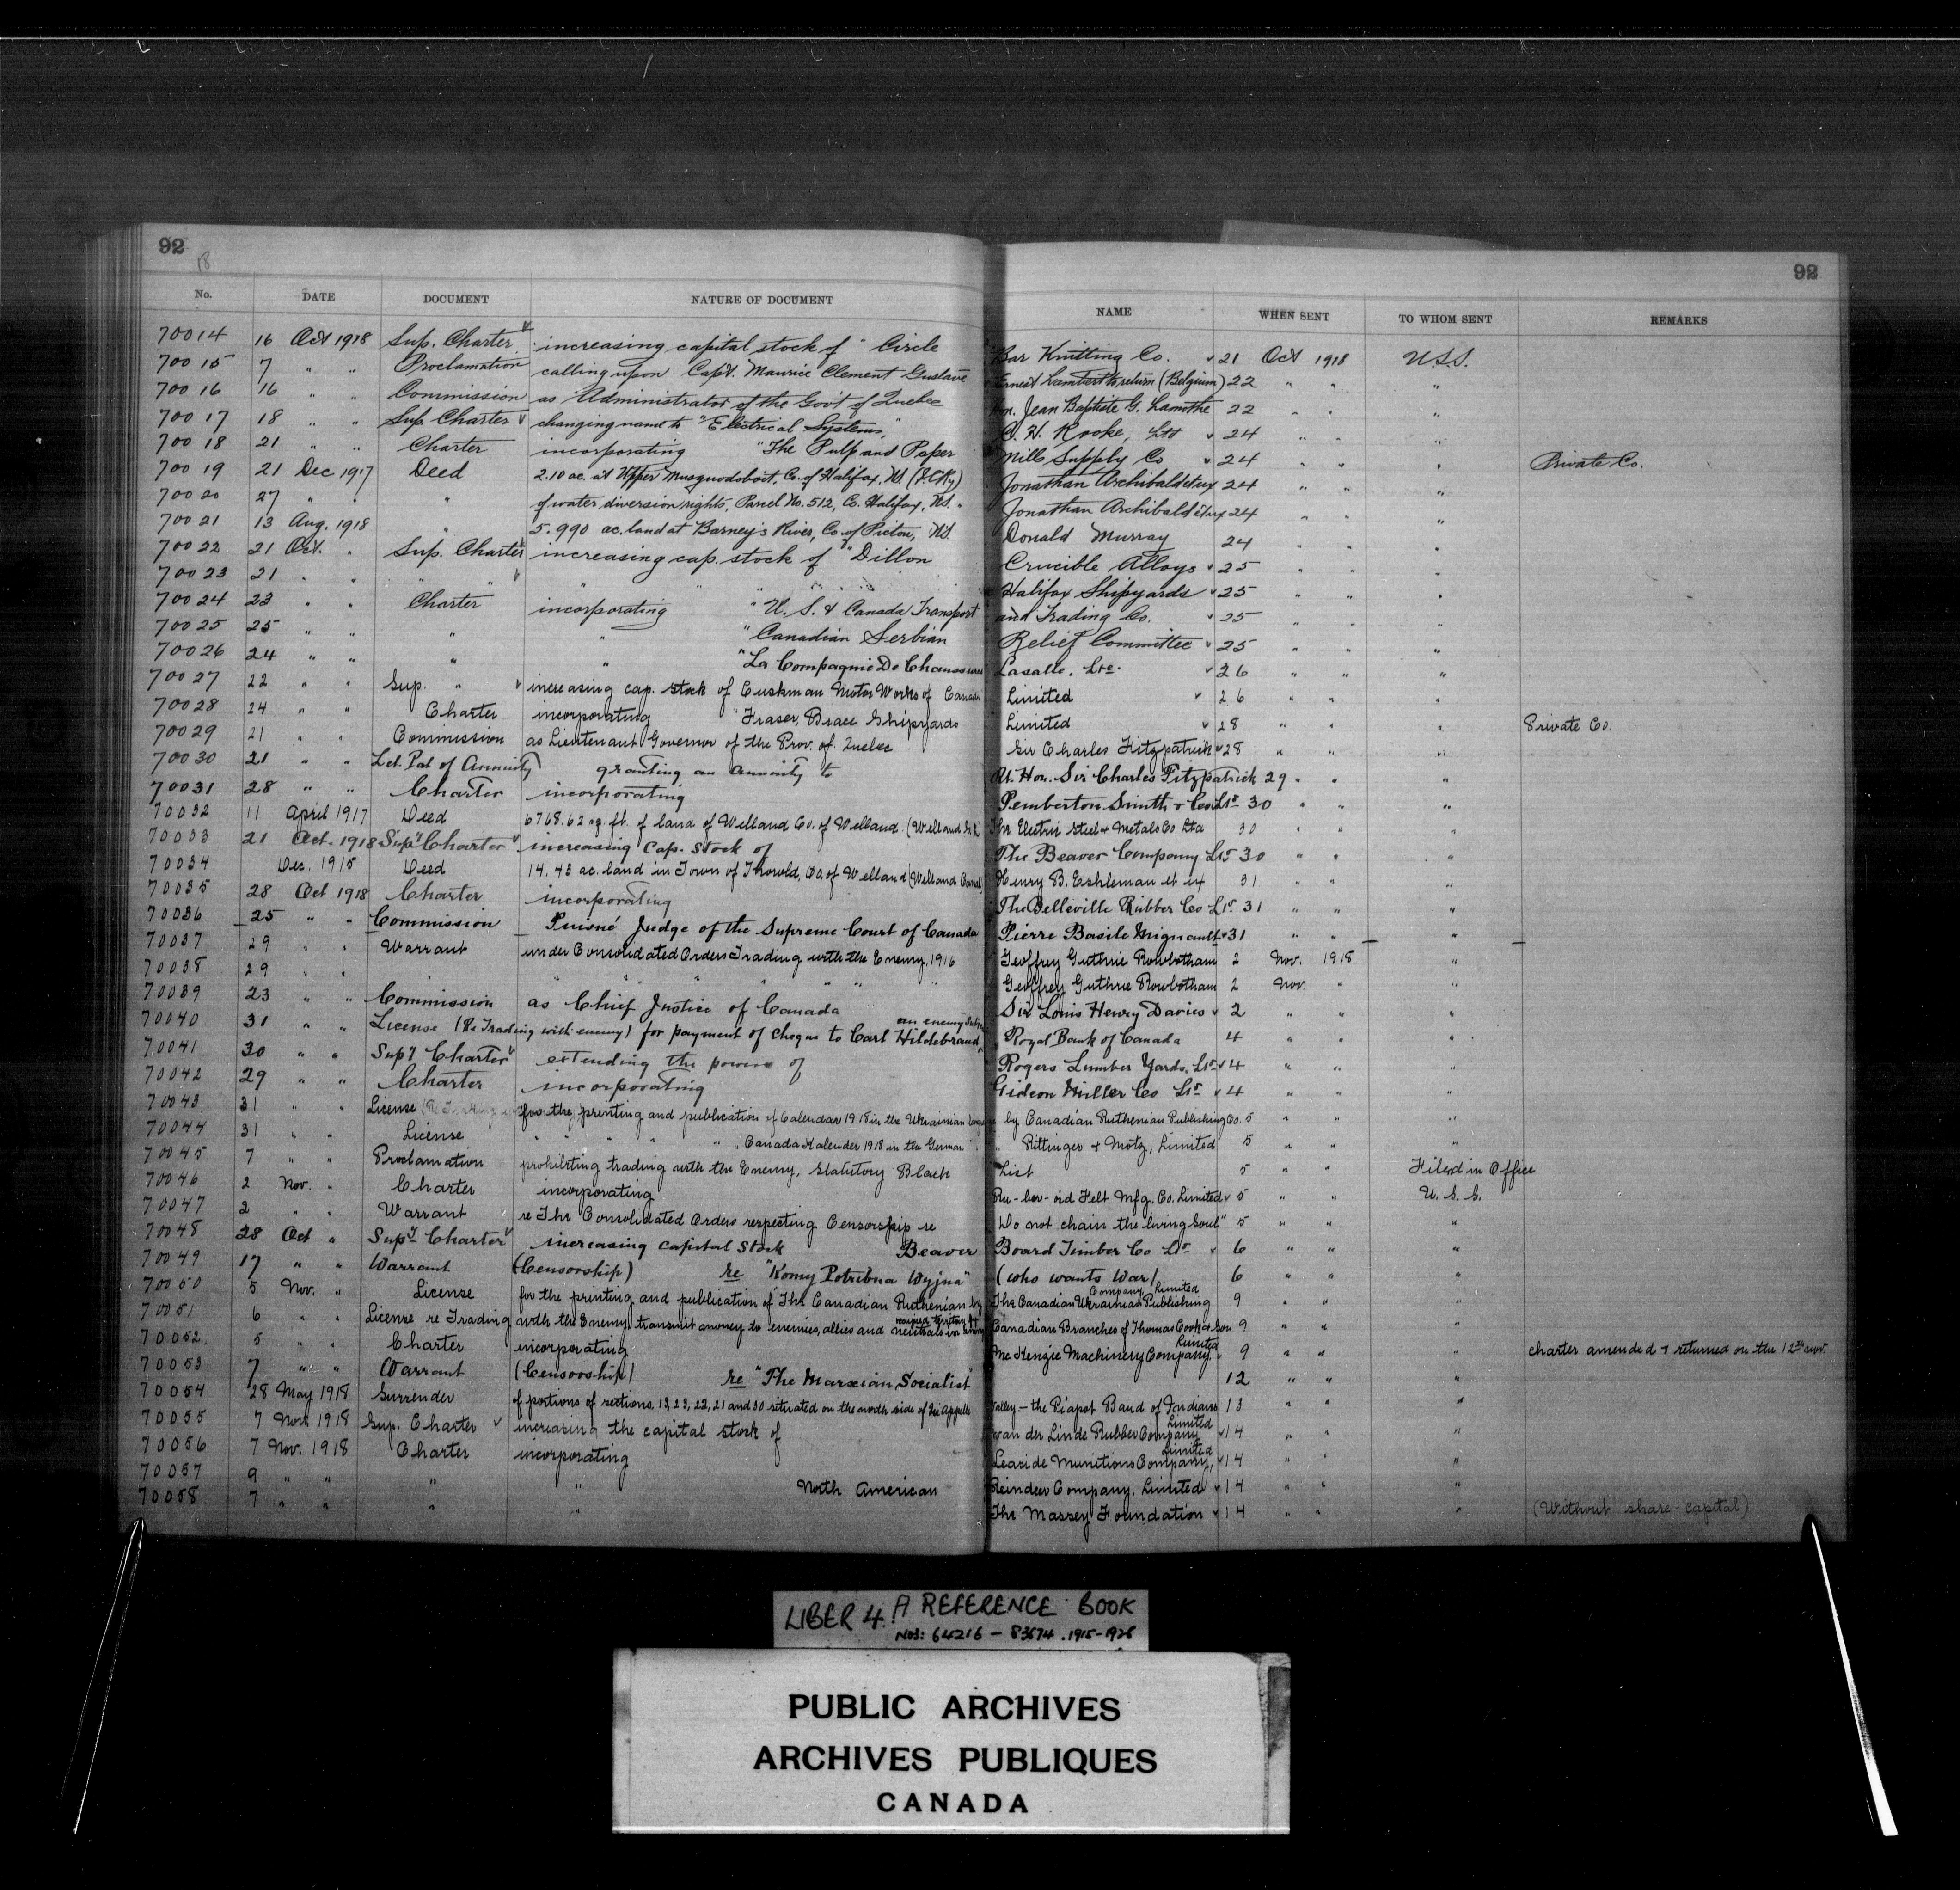 92
18
92
No. DATE DOCUMENT NATURE OF DOCUMENT NAME WHEN SENT TO WHOM SENT REMARKS
70014 16 Oct 1918 Sup. Charter increasing capital stock of "Circle Bar Knitting Co. 21 Oct 1918 U.S.S.
70015 7 " " Proclamation calling upon Capt. Maurice Clement Gustave Ernest Lambert to return (Belgium) 22 " " "
70016 16 " " Commission as Administrator of the Gov't of Quebec Hon. Jean Baptiste G. Lamothe 22 " " "
70017 18 " " Sup Charter changing name to "Electrical Systems," C. H. Rooke, Ltd 24 " " "
70018 21 " " Charter incorporating "The Pulp and Paper Mills Supply Co 24 " " " Private Co.
70019 21 Dec 1917 Deed 2.10 ac. at Upper Musquodoboit, Co. of Halifax, N.S. Jonathan Archibald et ux 24 " " "
70020 27 " " " of water diversion rights, Parcel No. 512, Co. Halifax, N.S. " Jonathan Archibald et ux 24 " " "
70021 13 Aug. 1918 " 5.990 ac. land at Barney's River, Co. of Pictou, N.S. Donald Murray 24 " " "
70022 21 Oct. " Sup. Charter increasing cap. stock of "Dillon Crucible Alloys 25 " " "
70023 21 " " " " " " " Halifax Shipyards 25 " " "
70024 23 " " Charter incorporating "U. S. & Canada Transport and Trading Co. 25 " " "
70025 25 " " " " "Canadian Serbian Relief Committee 25 " " "
70026 24 " " " " "La Compagnie De Chaussures Lasalle, Ltée. 26 " " "
70027 22 " " Sup. " increasing cap. stock of Cushman Motor Works of Canada Limited 26 " " "
70028 24 " " Charter incorporating "Fraser, Brace Shipyards Limited 28 " " " Private Co.
70029 21 " " Commission as Lieutenant Governor of the Prov. of Quebec Sir Charles Fitzpatrick 28 " " "
70030 21 " " Let. Pat of Annuity granting an annuity to Rt. Hon. Sir Charles Fitzpatrick 29 " " "
70031 28 " " Charter incorporating Pemberton Smith & Co Ltd 30 " " "
70032 11 April 1917 Deed 6768.62 sq. ft. of land of Welland Co. of Welland. The Electric Steel & Metals Co. Ltd 30 " " "
70033 21 Oct. 1918 Supy Charter increasing Cap. Stock of The Beaver Company Ltd 30 " " "
70034 Dec. 1915 Deed 14.43 ac. land in Town of Thorold, Co. of Welland (Welland Canal) Henry B. Eshleman et ux 31 " " "
70035 28 Oct 1918 Charter incorporating The Belleville Rubber Co Ltd 31 " " "
70036 25 " " Commission Puisné Judge of the Supreme Court of Canada Pierre Basile Mignault 31 " " "
70037 29 " " Warrant under Consolidated Orders Trading with the Enemy, 1916 Geoffrey Guthrie Rowbotham 2 Nov. 1918 "
70038 29 " " " " " " Geoffrey Guthrie Rowbotham 2 Nov. " "
70039 23 " " Commission as Chief Justice of Canada Sir Louis Henry Davies 2 " " "
70040 31 " " License (Re Trading with enemy) for payment of cheque to Carl Hildebrand, an enemy Royal Bank of Canada 4 " " "
70041 30 " " Supy Charter extending the powers of Rogers Lumber Yards, Ltd 4 " " "
70042 29 " " Charter incorporating Gideon Miller Co Ltd 4 " " "
70043 31 " " License for the printing and publication of Calendar 1918 in the Ukrainian by Canadian Ruthenian Publishing Co. 5 " " "
70044 31 " " License " " " " " Canada Kalender 1918 in the German " " Rittinger & Motz, Limited 5 " " "
70045 7 " " Proclamation prohibiting trading with the Enemy, Statutory Black List 5 " " Filed in Office
70046 2 Nov. " Charter incorporating Ru-ber-oid Felt Mfg. Co. Limited 5 " " U. S. S.
70047 2 " " Warrant re The Consolidated Orders respecting Censorship re "Do not chain the living Soul" 5 " " "
70048 28 Oct " Supy Charter increasing capital stock Beaver Board Timber Co Ltd 6 " " "
70049 17 " " Warrant (Censorship) re "Komy Potribna Wyjna" (who wants War) 6 " " "
70050 5 Nov. " License for the printing and publication of "The Canadian Ruthenian by The Canadian Ukrainian Publishing Company, Limited 9 " " "
70051 6 " " License re Trading with the Enemy, transmit money to enemies, allies and neutrals in occupied territory by Canadian Branches of Thomas Cook & Son 9 " " "
70052 5 " " Charter incorporating McKenzie Machinery Company, Limited 9 " " " charter amended & returned on the 12th nov.
70053 7 " " Warrant (Censorship) re "The Marxian Socialist" 12 " " "
70054 28 May 1918 Surrender of portions of sections, 13, 23, 22, 21 and 30 situated on the north side of Qu'Appelle Valley – the Piapot Band of Indians 13 " " "
70055 7 Nov. 1918 Sup. Charter increasing the capital stock of van der Linde Rubber Company Limited 14 " " "
70056 7 Nov. 1918 Charter incorporating Leaside Munitions Company, Limited 14 " " "
70057 9 " " " " North American Reindeer Company, Limited 14 " " "
70058 7 " " " " The Massey Foundation 14 " " " (Without share-capital)
LIBER 4. A REFERENCE BOOK
NOS: 64216 – 83674. 1915-1928
PUBLIC ARCHIVES
ARCHIVES PUBLIQUES
CANADA